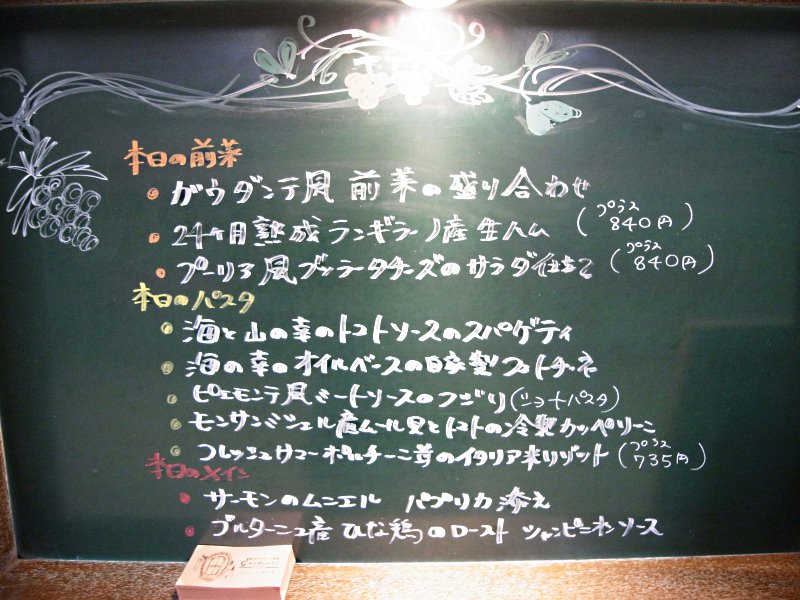 本日の前菜
・ガウダンテ風 前菜の盛り合わせ
・24ヶ月熟成ランギラーノ産生ハム (プラス840円)
・プーリア風ブッラータチーズのサラダ仕立て (プラス840円)
本日のパスタ
・海と山の幸のトマトソースのスパゲティ
・海の幸のオイルベースの自家製フェトチーネ
・ピエモンテ風ミートソースのフジリ(ショートパスタ)
・モンサンミシェル産ムール貝とトマトの冷製カッペリーニ
・フレッシュサマーポルチーニ茸のイタリア米リゾット (プラス735円)
本日のメイン
・サーモンのムニエル パプリカ添え
・ブルターニュ産ひな鶏のロースト シャンピニオンソース